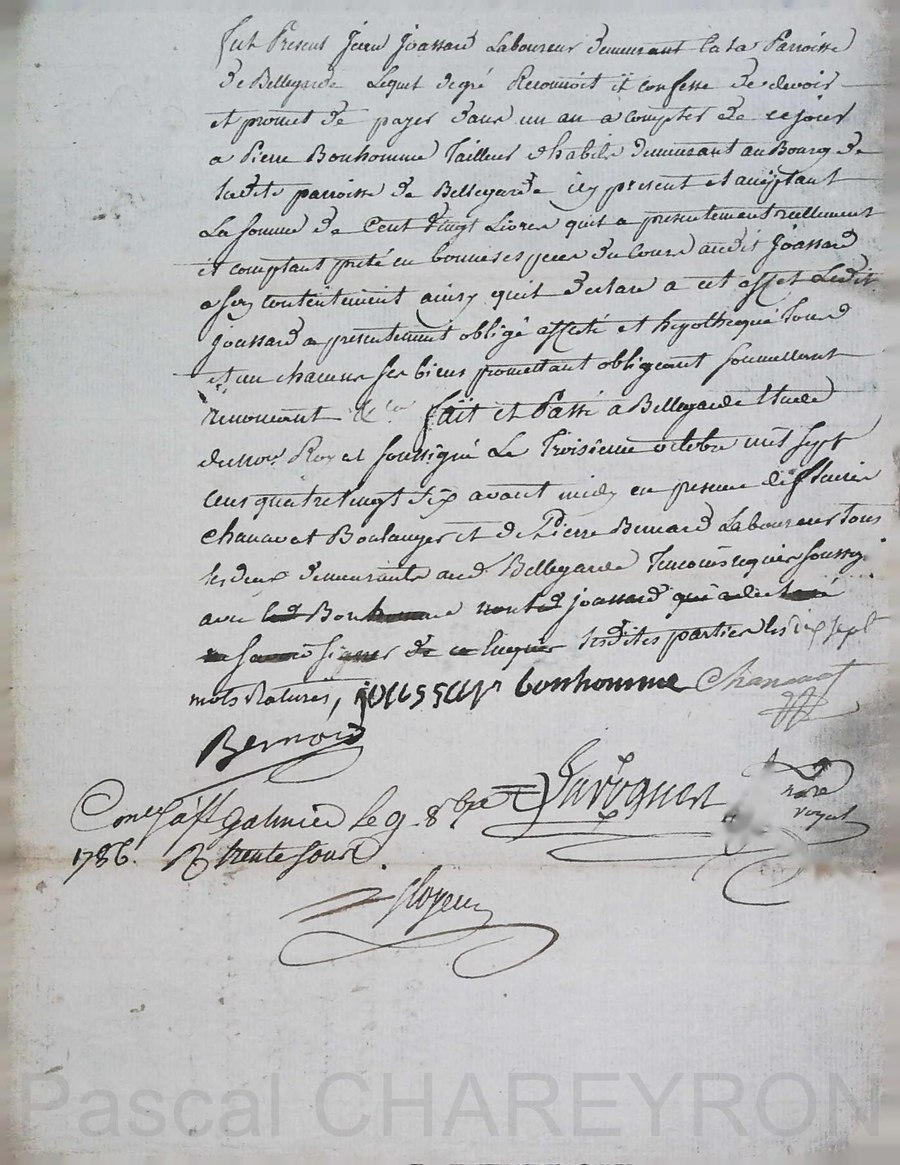 Fut Present Jean Joassard Laboureur demeurant en la Parroisse
de Bellegarde Lequel de gré Reconnoit et confesse de devoir
et promet de payer dans un an a compter de ce jour
a Pierre Bonhomme Tailleur d'habits demeurant au Bourg de
ladite parroisse de Bellegarde icy present et acceptant
La somme de Cent Vingt Livres qu'il a presentement reellement
et comptant preté en bonnes especes du cours audit Joassard
a son contentement ainsy qu'il declare a cet effet Ledit
Joassard a presentement obligé affecté et hypothequé tous
et un chacuns ses biens promettant obligeant soumettant
renoncant &ca fait et Passé a Bellegarde Etude
du No.re Royal soussigné Le Troisieme octobre mil sept
cens quatre vingt six avant midy en presence de
Chanavat Boulanger et de Pierre Bernard Laboureur tous
les deux demeurants aud Bellegarde Temoins requis soussig.
avec led Bonhomme joassard que a declaré
signer de ce lesdites parties les dix sept
mots Raturés, joassar bonhomme Chanavat
Bernard
Con.lé a St Galmier le 9 8bre Javognen no.re
1786. R. trente sous royal
Ployeu
Pascal CHAREYRON